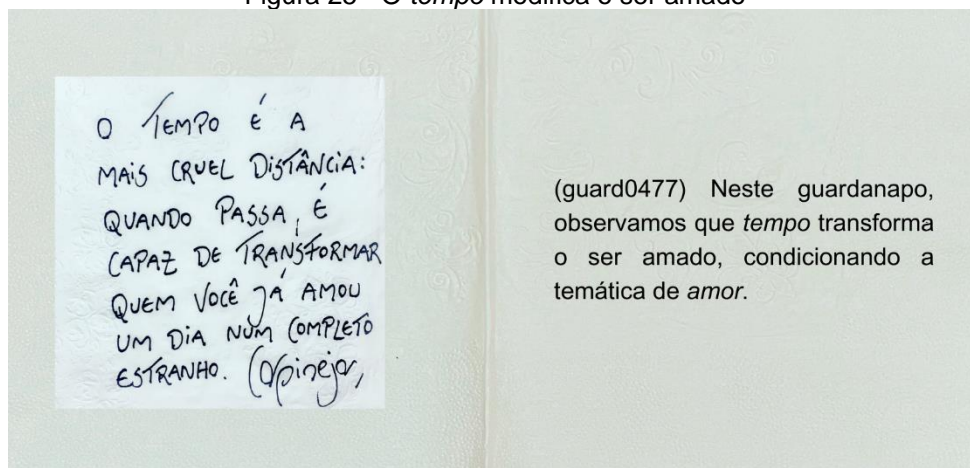 Figura 25 - O tempo modifica o ser amado
O TEMPO É A
MAIS CRUEL DISTÂNCIA:
QUANDO PASSA, É
CAPAZ DE TRANSFORMAR
QUEM VOCÊ JÁ AMOU
UM DIA NUM COMPLETO
ESTRANHO. Carpinejar
(guard0477) Neste guardanapo,
observamos que tempo transforma
o ser amado, condicionando a
temática de amor.